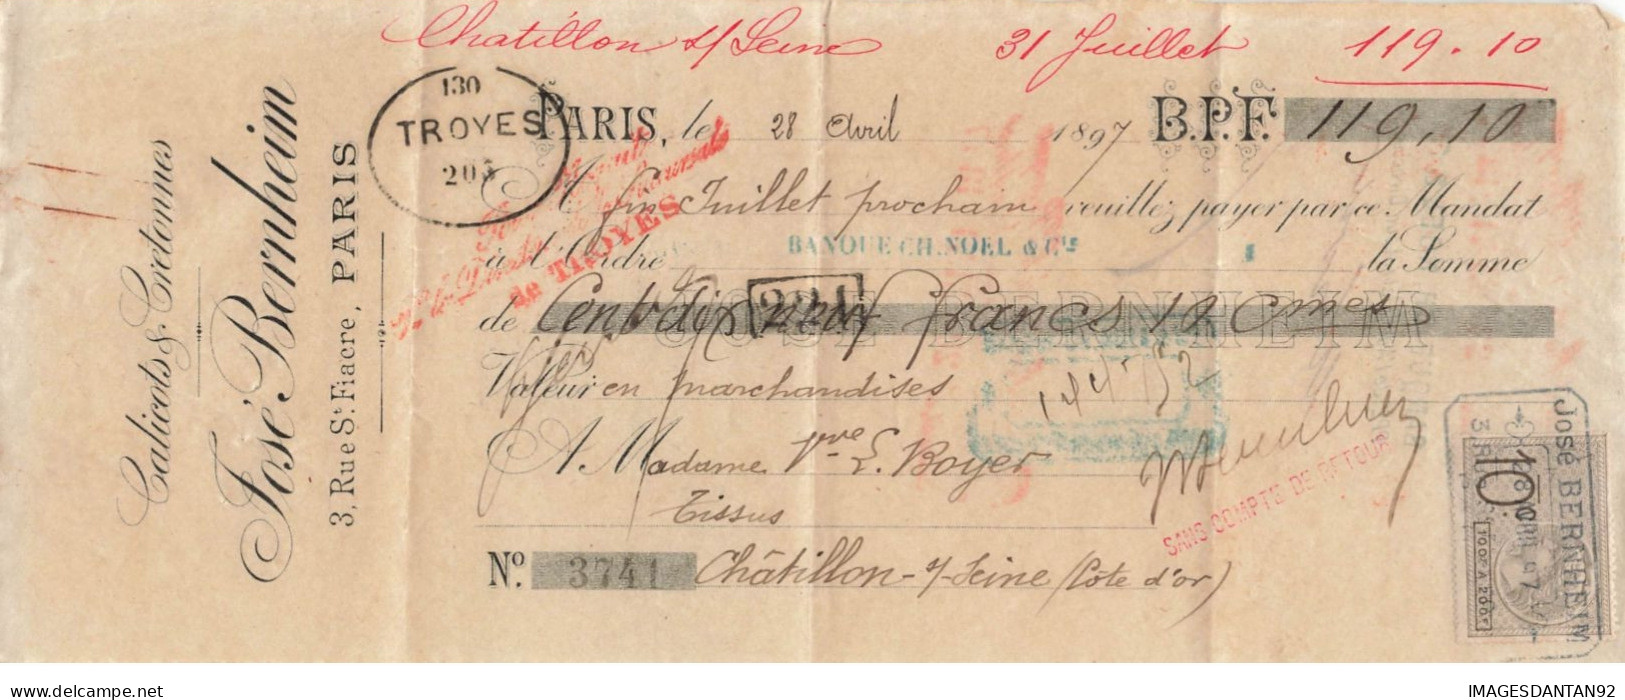 Châtillon s/ Seine 31 Juillet 119.10
130
TROYES
205
PARIS, le 28 Avril 1897 B.P.F. 119,10
A fin Juillet prochain veuillez payer par ce Mandat
à l'Ordre BANQUE CH. NOEL & Cie la Somme
de TROYES
de Cent dix neuf francs 10 cmes
JOSÉ BERNHEIM
221
Valeur en marchandises
A Madame Vve E. Boyer
Tissus
No. 3741 Châtillon s/ Seine (Côte d'or)
SANS COMPTE DE RETOUR
Calicots & Cretonnes
José Bernheim
3, Rue St. Fiacre, PARIS
JOSÉ BERNHEIM
10c
100f A 200f
IMAGESDANTAN92